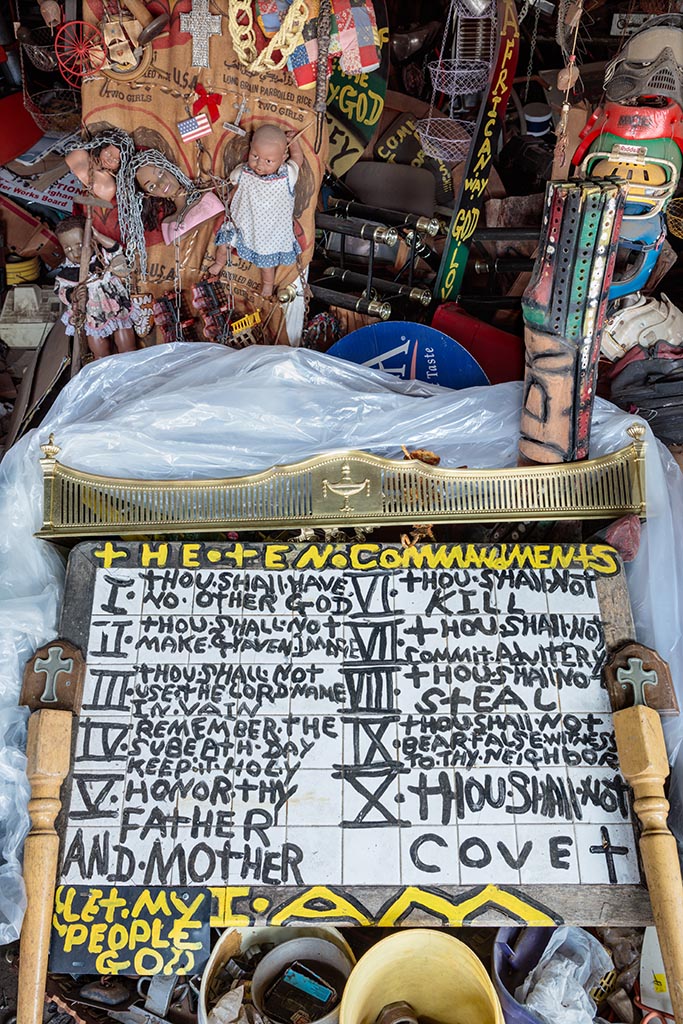 USA
LONG GRAIN PARBOILED RICE
TWO GIRLS
TWO GIRLS
BY
GOD
AFRICAN.WAY.GOD.LOV
Riddell
USA
LONG GRAIN PARBOILED RICE
Works Board
A®
Taste
THE•TEN•COMMANDMENTS
I• THOU•SHALL•HAVE
NO•OTHER•GOD
II• THOU•SHALL•NOT
MAKE•
III THOU•SHALL•NOT
USE•THE LORD•NAME
IN•VAIN
IV• REMEMBER•THE
SUBEATH•DAY
KEEP•IT•HOLY
V• HONOR•THY
FATHER
AND•MOTHER
VI• THOU•SHALL•NOT
KILL
VII THOU•SHALL•NOT
COMMIT•ADUITERY
VIII THOU•SHALL•NO
STEAL
IX THOU•SHALL•NOT
BEAR•FALSE•WITNESS
TO•THY•NEIGHBOR
X• THOU•SHALL•NOT
COVE✝
LET•MY
PEOPLE
GOD
I•AM